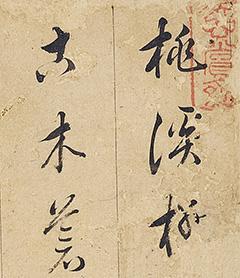 桃溪柳
古木蒼